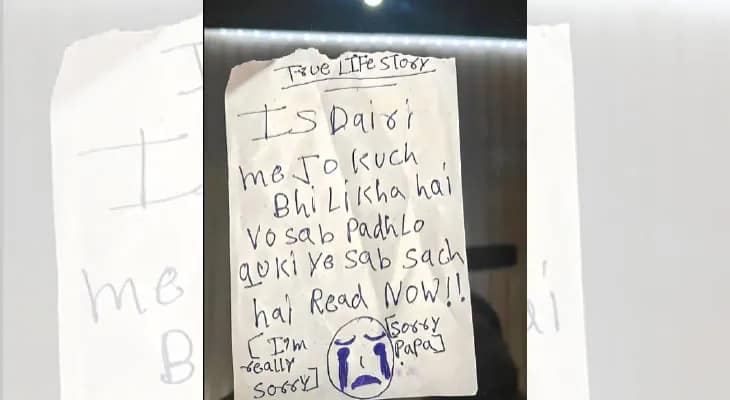 True LIFe StoRy
IS Dairi
me Jo kuch
Bhi Likha hai
Vo sab Padh Lo
quki ye sab sach
hai Read NOW!!
[I'm
really
sorry]
[sorry
Papa]